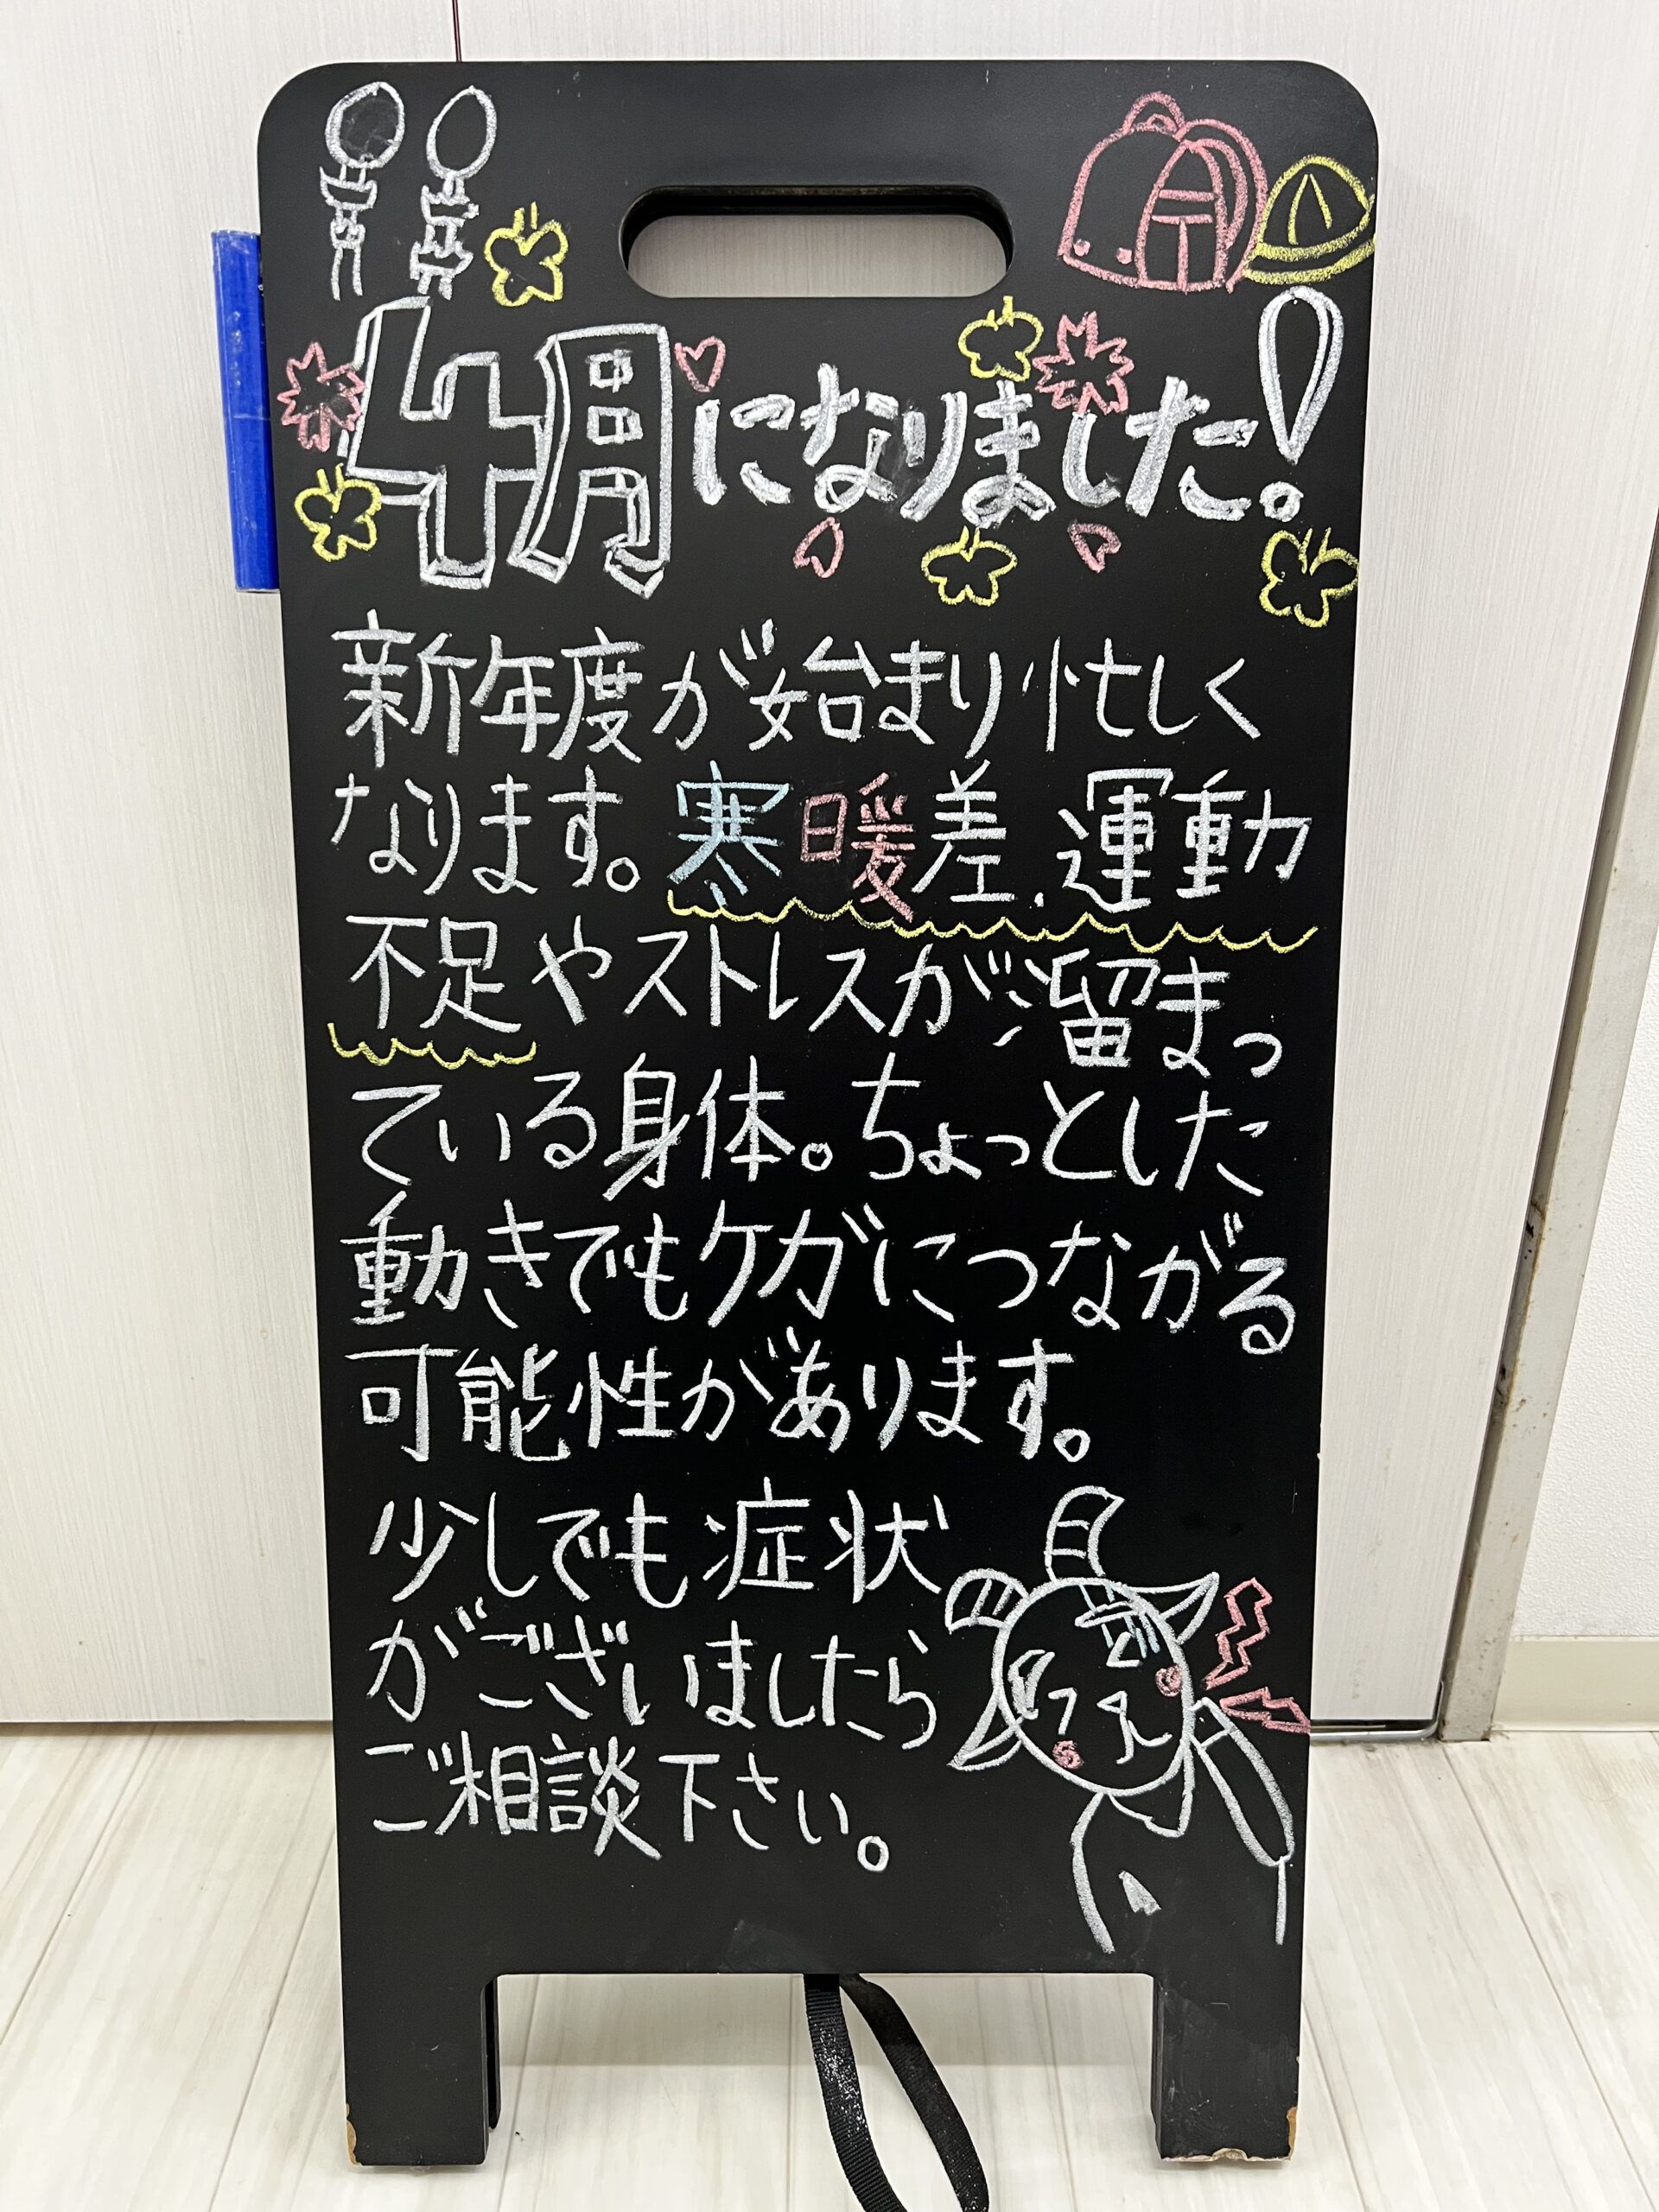 4月になりました!
新年度が始まり忙しく
なります。寒暖差、運動
不足やストレスが溜まっ
ている身体。ちょっとした
動きでもケガにつながる
可能性があります。
少しでも症状
がございましたら
ご相談下さい。